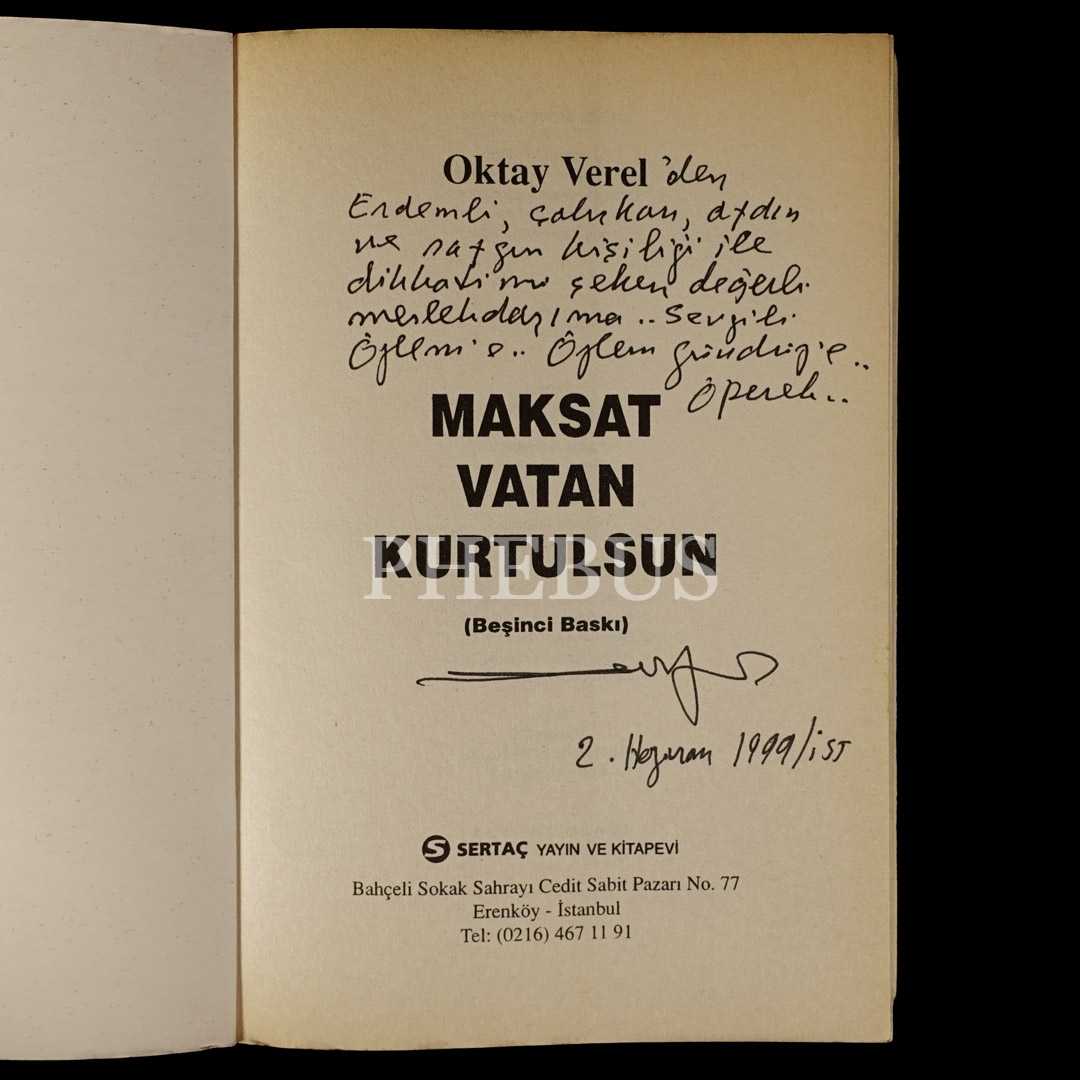 Oktay Verel 'den
Erdemli, çalışkan, aydın
ve saygın kişiliği ile
dikkatimi çeken değerli
meslekdaşıma.. Sevgili
Özlem'e.. Özlem
Öperek..
MAKSAT
VATAN
KURTULSUN
PHEBUS
(Beşinci Baskı)
2. Haziran 1999/İST
SERTAÇ YAYIN VE KİTAPEVİ
Bahçeli Sokak Sahrayı Cedit Sabit Pazarı No. 77
Erenköy - İstanbul
Tel: (0216) 467 11 91